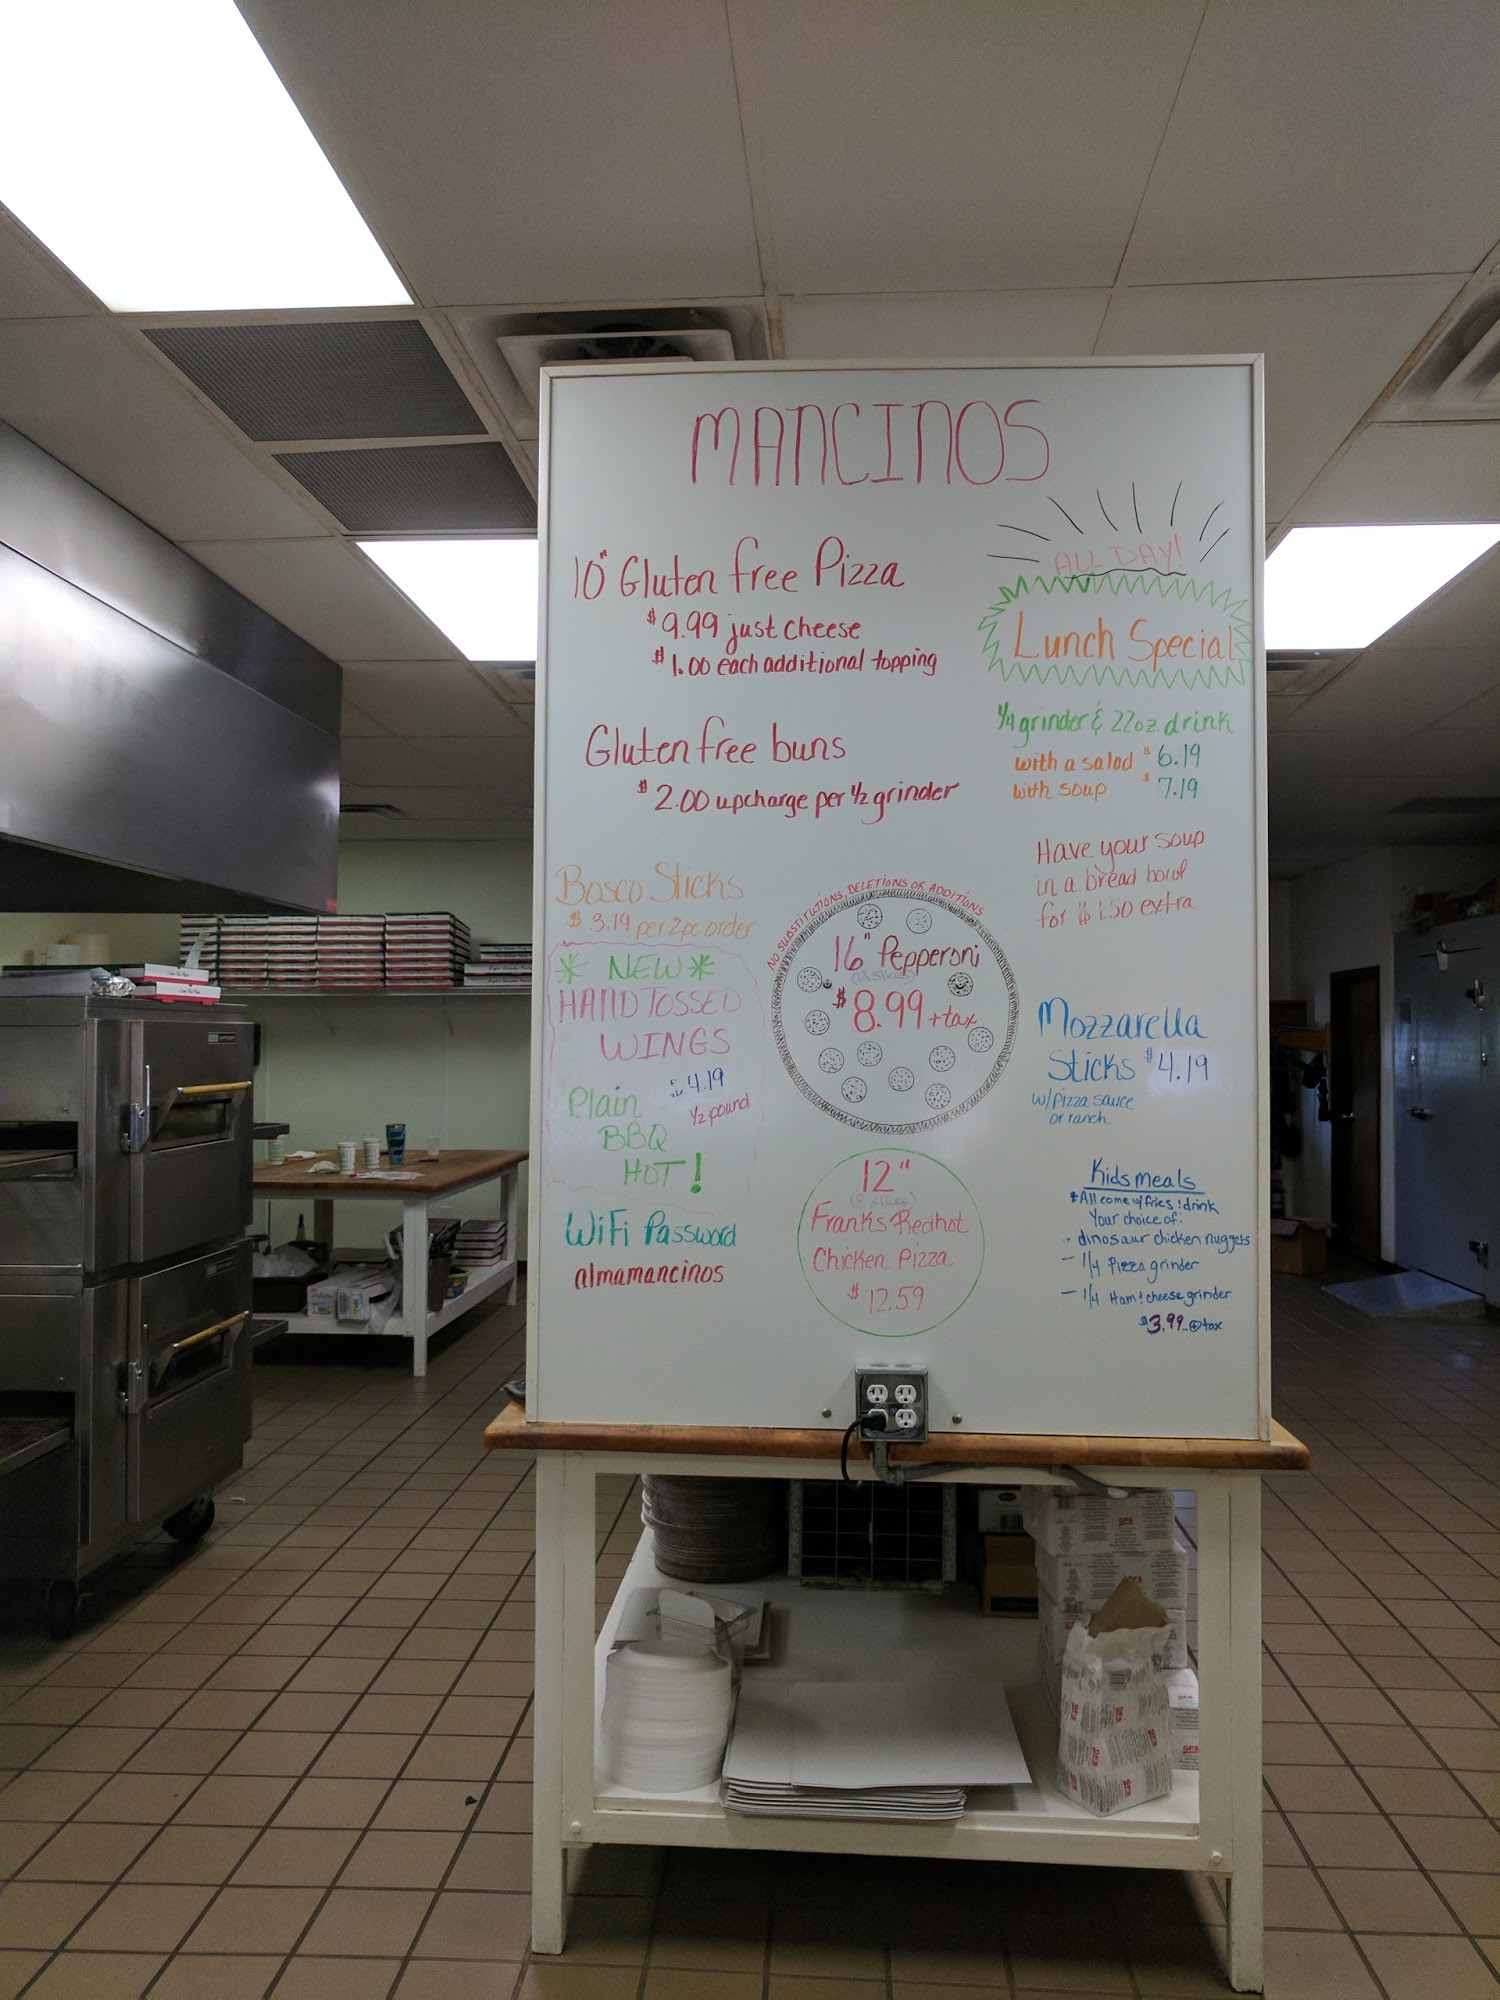 MANCINOS
10" Gluten free Pizza
$9.99 just cheese
$1.00 each additional topping
Gluten free buns
$2.00 upcharge per 1/2 grinder
ALL DAY!
Lunch Special
1/4 grinder & 22oz. drink
with a salad $6.19
with soup $7.19
Have your soup
in a bread bowl
for $1.50 extra
Bosco Sticks
$3.19 per 2pc order
* NEW *
HAND TOSSED
WINGS
$4.19
1/2 pound
Plain
BBQ
HOT!
WiFi Password
almamancinos
NO SUBSTITUTIONS, DELETIONS OR ADDITIONS
16" Pepperoni
$8.99 + tax
12"
(8 slices)
Franks Redhot
Chicken Pizza
$12.59
Mozzarella
Sticks $4.19
w/pizza sauce
or ranch
Kids meals
*All come w/ fries & drink
Your choice of:
- dinosaur chicken nuggets
- 1/4 Pizza grinder
- 1/4 Ham & cheese grinder
$3.99 + tax
GFS
GFS